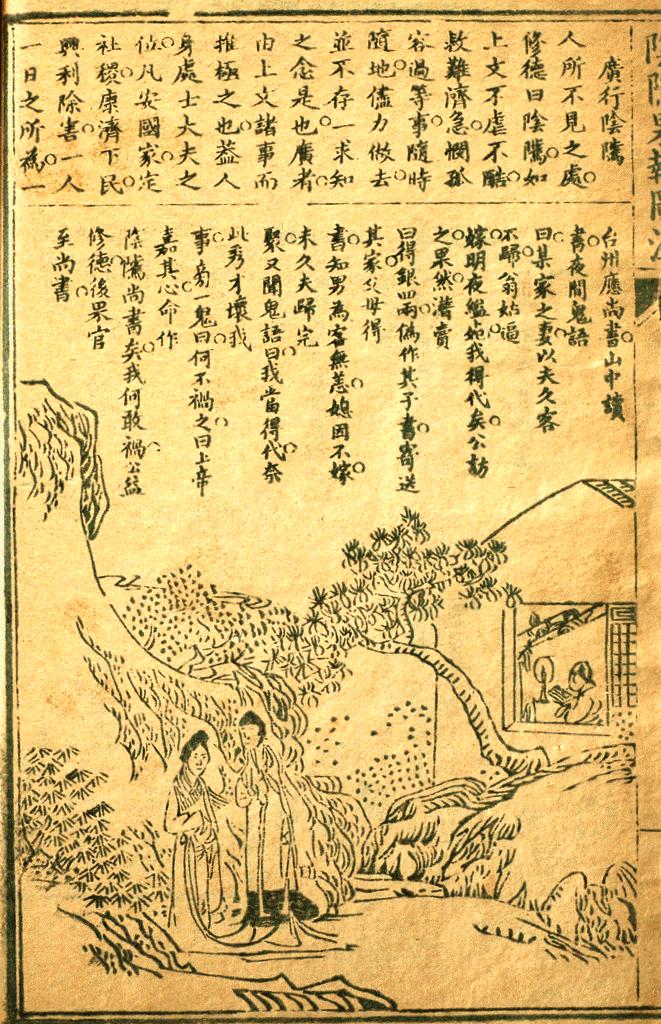 陰隲果報圖注
廣行陰隲
人所不見之處
修德曰陰隲如
上文不虐不酷
救難濟急憫孤
容過等事隨時
隨地儘力做去
並不存一求知
之念是也廣者
由上文諸事而
推極之也蓋人
身處士大夫之
位凡安國家定
社稷康濟下民
興利除害一人
一日之所為一
台州應尚書山中讀
書夜聞鬼語
曰某家之妻以夫久客
不歸翁姑逼
嫁明夜縊我得代矣公訪
之果然潛賣
田得銀四兩偽作其子書寄送
其家父母得
書知男為客無恙媳因不嫁
未久夫歸完
聚又聞鬼語曰我當得代奈
此秀才壞我
事旁一鬼曰何不禍之曰上帝
嘉其心命作
陰隲尚書矣我何敢禍公益
修德後果官
至尚書